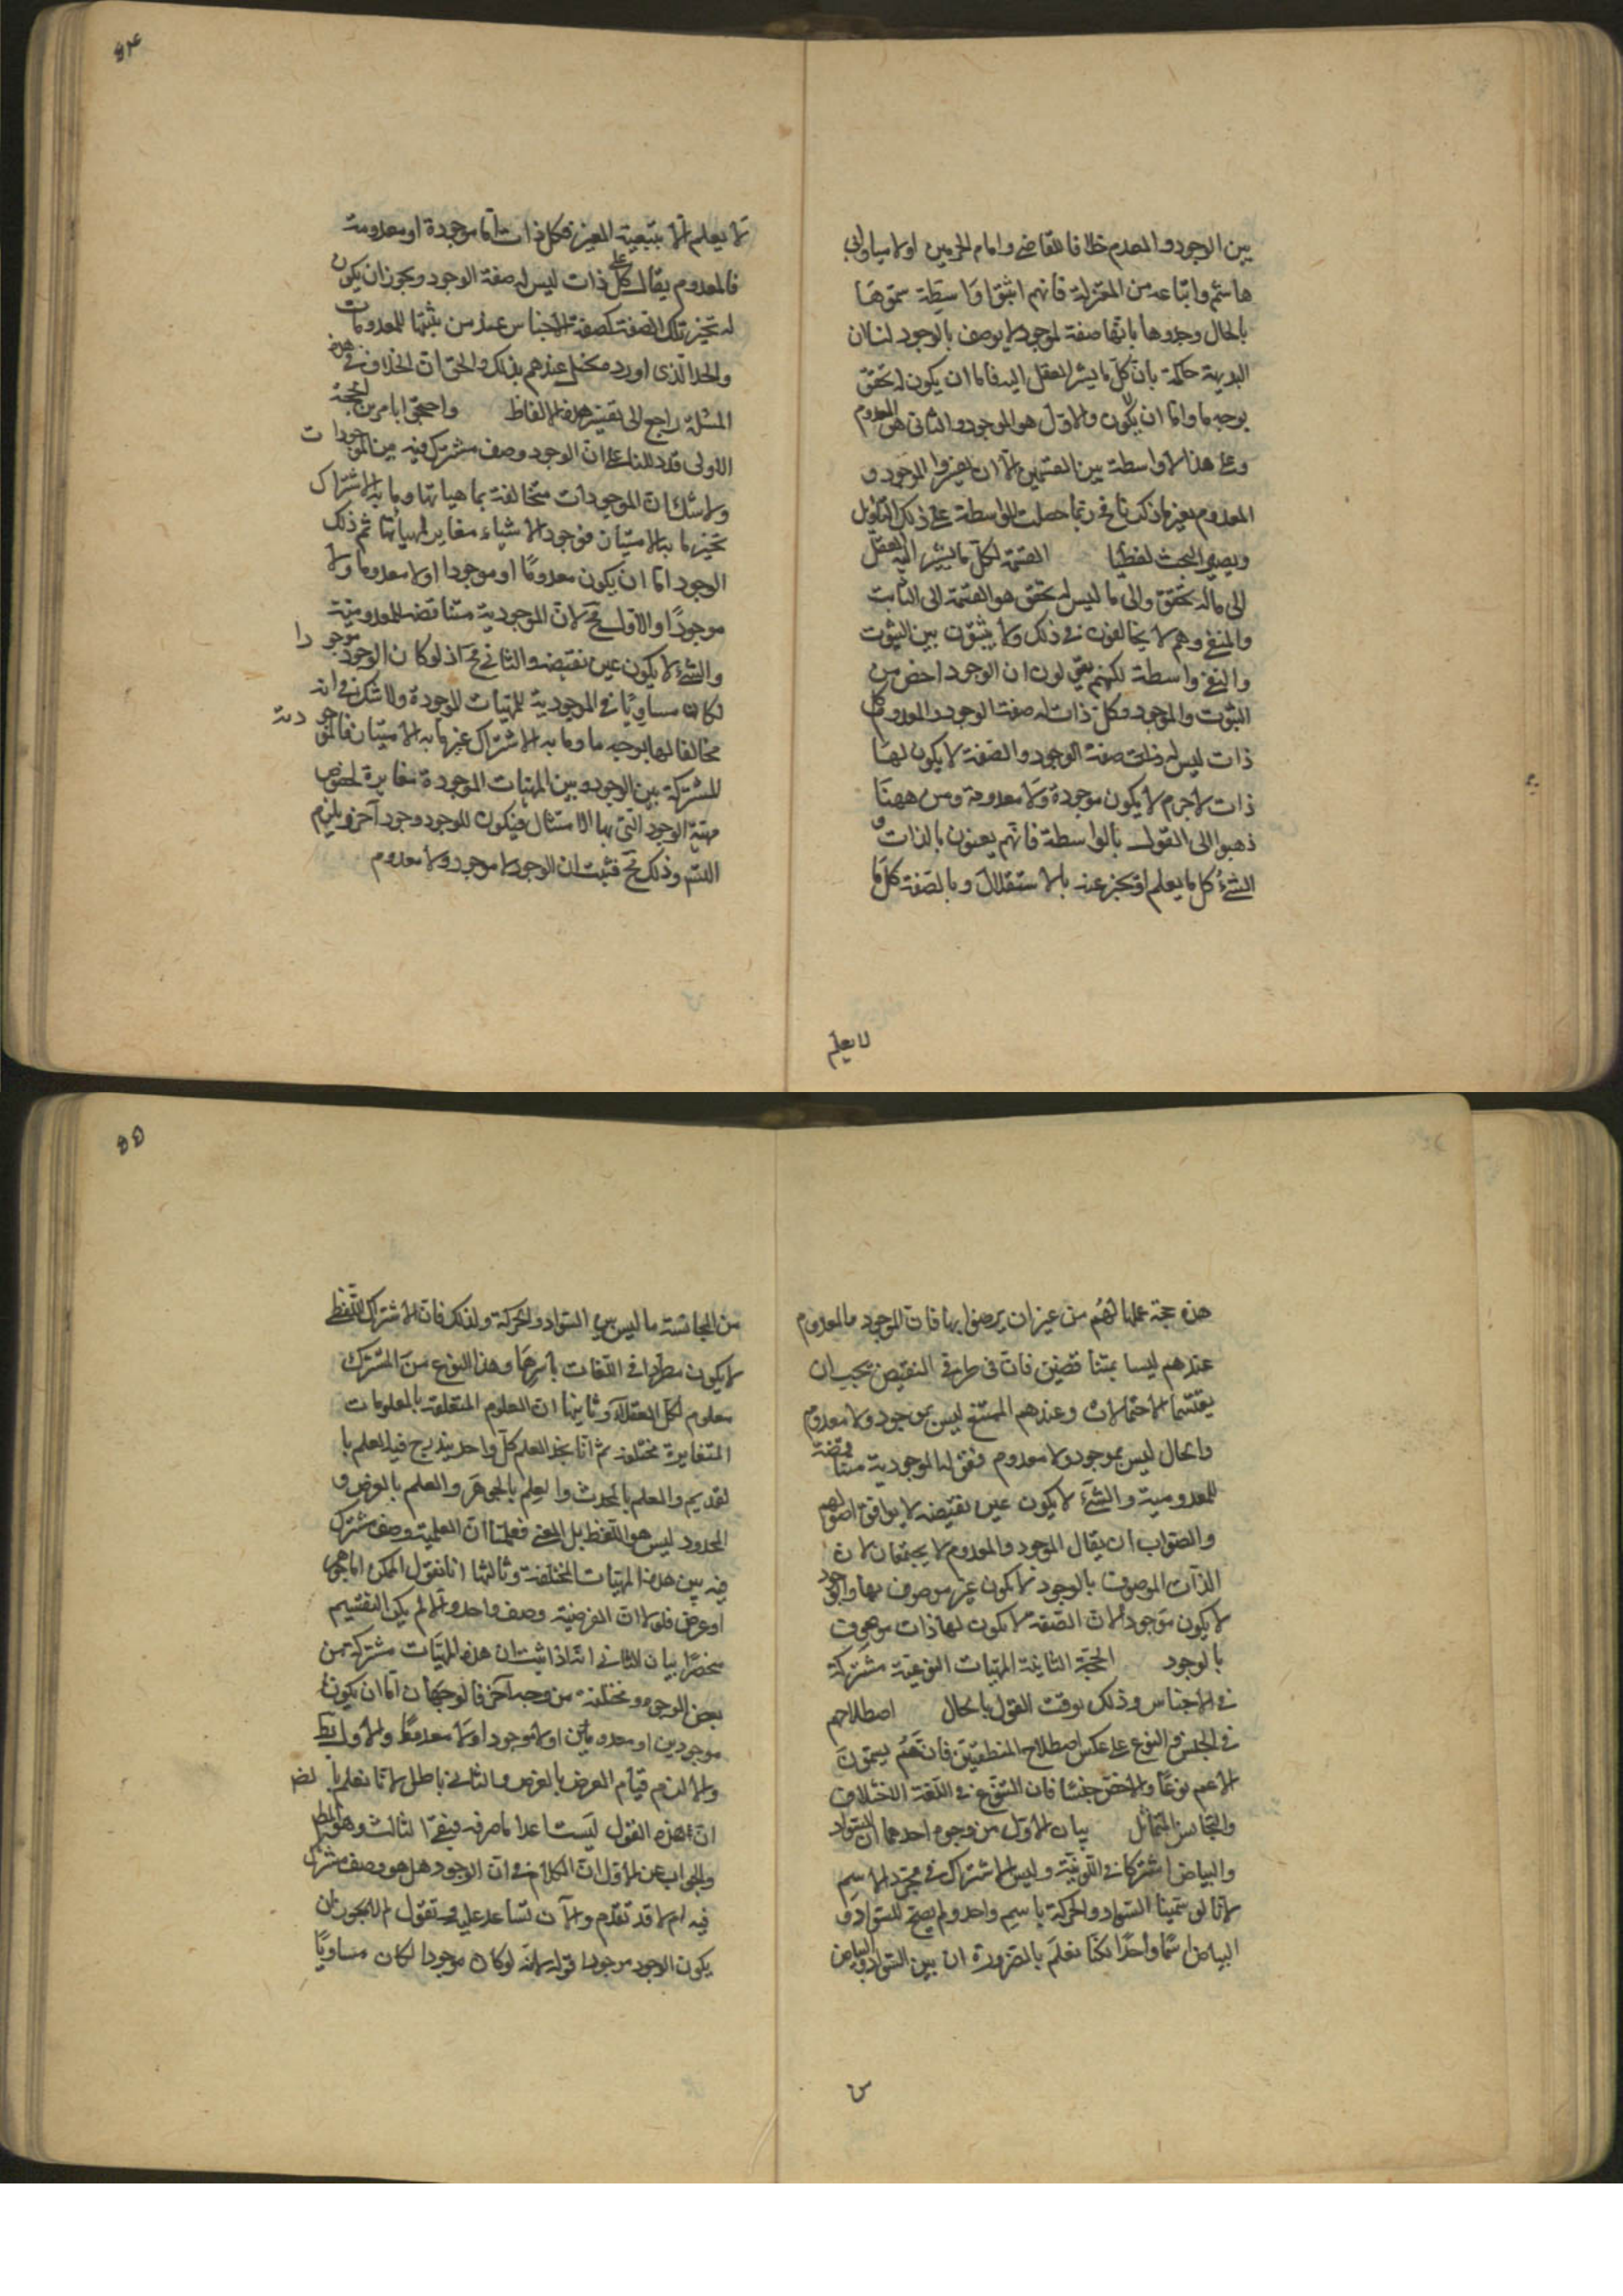 بين الوجود والمعدوم خلافا للقاضى وامام الحرمين اولا سيما وابى
هاشم واتباعه من المعتزلة فانهم اثبتوا واسطة سموها
بالحال وحدوها بانها صفة لموجود لا يوصف بالوجود لنا ان
البديهة حاكمة بان كل ما يشير العقل اليه فاما ان يكون له تحقق
بوجه ما واما ان لا يكون والاول هو الموجود والثانى هو المعدوم
وعلى هذا لا واسطة بين القسمين الا ان يفسروا الموجود و
المعدوم بغير ما ذكرنا فح ربما حصلت الواسطة على ذلك التاويل
ويصير البحث لفظيا القسمة لكل ما يشير اليه العقل
الى ما له تحقق والى ما ليس له تحقق هو القسمة الى الثابت
والمنفى وهم لا يخالفون فى ذلك ولا يثبتون بين الثبوت
والنفى واسطة لكنهم يقولون ان الوجود اخص من
الثبوت والموجود وكل ذات له صفة الوجود والمعدوم كل
ذات ليس له ذلك صفة الوجود والصفة لا يكون لها
ذات لا جرم لا يكون موجودة ولا معدومة ومن ههنا
ذهبوا الى القول بالواسطة فانهم يعنون بالذات و
الشئ كل ما يعلم او يخبر عنه بالاستقلال وبالصفة كل ما
لا يعلم
۵۴
لا يعلم الا بتبعية الغير فكل ذات اما موجودة او معدومة
فالمعدوم يقال على كل ذات ليس له صفة الوجود ويجوز ان يكون
له غير تلك الصفة كصفة الاجناس عند من يثبتها للمعدومات
والحد الذى اورد مختل عندهم بذلك والحق ان الخلاف فى هذه
المسئلة راجع الى تفسير هذه الالفاظ واحتجوا بامرين الحجة
الاولى قد دللنا على ان الوجود وصف مشترك فيه بين الموجودات
ولا شك ان الموجودات متخالفة بماهياتها وما به الاشتراك
غير ما به الامتياز فوجود الاشياء مغاير لمهياتها ثم ذلك
الوجود اما ان يكون معدوما او موجودا او لا معدوما ولا
موجودا والاول مح لان الموجودية مناقضة للمعدومية
والشئ لا يكون عين نقيضه والثانى مح اذ لو كان الوجود موجودا
لكان مساويا فى الموجودية للمهيات الموجودة ولا شك فى انه
مخالف لها بوجه ما وما به الاشتراك غير ما به الامتياز فالموجودية
المشتركة بين الوجود وبين المهيات الموجودة مغايرة لخصوص
مهية الوجود التى بها الامتياز فيكون للوجود وجود آخر ويلزم
التسـ وذلك مح فثبت ان الوجود لا موجود ولا معدوم
هذه حجة عملها لهم من غير ان يرضوا بها فان الموجود والمعدوم
عندهم ليسا بمتناقضين فان فى طرفى النقيض يجب ان
يقتسما الاحتمالات وعندهم الممتنع ليس بموجود ولا معدوم
والحال ليس بموجود ولا معدوم فقوله الموجودية مناقضة
للمعدومية والشئ لا يكون عين نقيضه لا يوافق اصولهم
والصواب ان يقال الموجود والمعدوم لا يجتمعان لان
الذات الموصوفة بالوجود لا يكون غير موصوف بها والوجود
لا يكون موجودا لان الصفة لا يكون لها ذات موصوف
بالوجود الحجة الثانية المهيات النوعية مشتركة
فى الاجناس وذلك يوقت القول بالحال اصطلاحهم
فى الجنس والنوع على عكس اصطلاح المنطقيين فانهم يسمون
الاعم نوعا والاخص جنسا فان التنوع فى اللغة الاختلاف
والتجانس التماثل بيان الاول من وجوه احدها ان السواد
والبياض اشتركا فى اللونية وليس الاشتراك فى مجرد الاسم
لانا لو سمينا السواد والحركة باسم واحد ولم يضع للسواد و
البياض اسما واحدا لكنا نعلم بالضرورة ان بين السواد والبياض
من
۵۵
من المجانسة ما ليس بين السواد والحركة ولذلك فان الاشتراك اللفظى
لا يكون مطردا فى اللغات باسرها وهذا النوع من المشترك
معلوم لكل العقلاء وثانيها ان العلوم المتعلقة بالمعلومات
المتغايرة مختلفة ثم انا نجد العلم كل واحد يندرج فيه العلم با
لقديم والعلم بالمحدث والعلم بالجوهر والعلم بالعرض و
المحدود ليس هو اللفظ بل المعنى فعلمنا ان العلمية وصف مشترك
فيه بين هذه المهيات المختلفة وثالثها انا نقول الممكن اما جوهر
او عرض فلولا ان العرضية وصف واحد والا لم يكن التقسيم
منحصرا بيان الثانى انه اذا ثبت ان هذه المهيات مشتركة من
بعض الوجوه ومختلفة من وجه آخر فالوجهان اما ان يكونا
موجودين او معدومين او لا موجودا ولا معدوما والاول بط
والا لزم قيام العرض بالعرض والثانى باطل لانا نعلم بالضـ
ان هذه القول ليست اعداما صرفة فبقى الثالث وهو المط
والجواب عن الاول ان الكلام فى ان الوجود هل هو وصف مشترك
فيه ام لا قد تقدم والآن نساعد عليه ونقول لم لا يجوز ان
يكون الوجود موجودا قوله لانه لو كان موجودا لكان مساويا